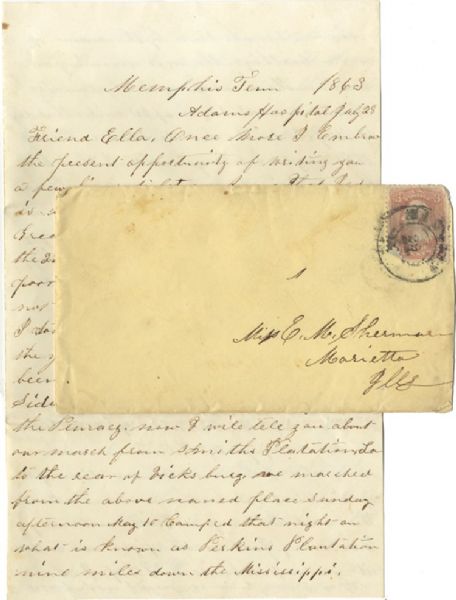 Memphis Tenn 1863
Adams Hospital July 28
Friend Ella, Once More I Embrace
the present opportunity of writing you
a few
is
the
poor
not
I
the
been
Side
the now I will tell you about
our march from Smiths Plantation La
to the rear of Vicksburg. we marched
from the above named place Sunday
afternoon May 10 Camped that night on
what is known as Perkins Plantation
nine miles down the Mississippi.
Miss E. M. Sherman
Marietta
Ills